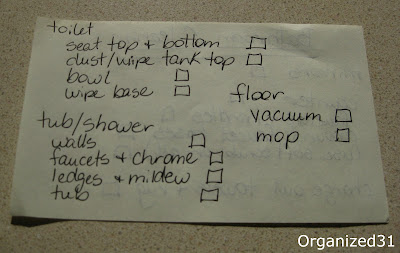 toilet
seat top + bottom
dust/wipe tank top
bowl
wipe base
tub/shower
walls
faucets + chrome
ledges + mildew
tub
floor
vacuum
mop
Organized31